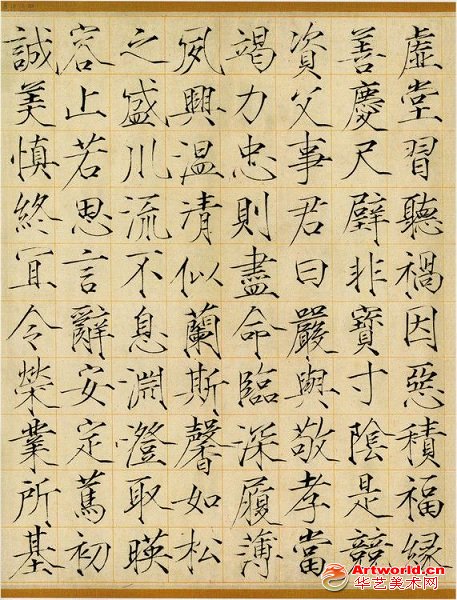 虚堂習聽禍因惡積福緣
善慶尺璧非寶寸陰是競
資父事君曰嚴與敬孝當
竭力忠則盡命臨深履薄
夙興温清似蘭斯馨如松
之盛川流不息淵澄取暎
容止若思言辭安定篤初
誠美慎終宜令榮業所基
Artworld.cn
华艺美术网